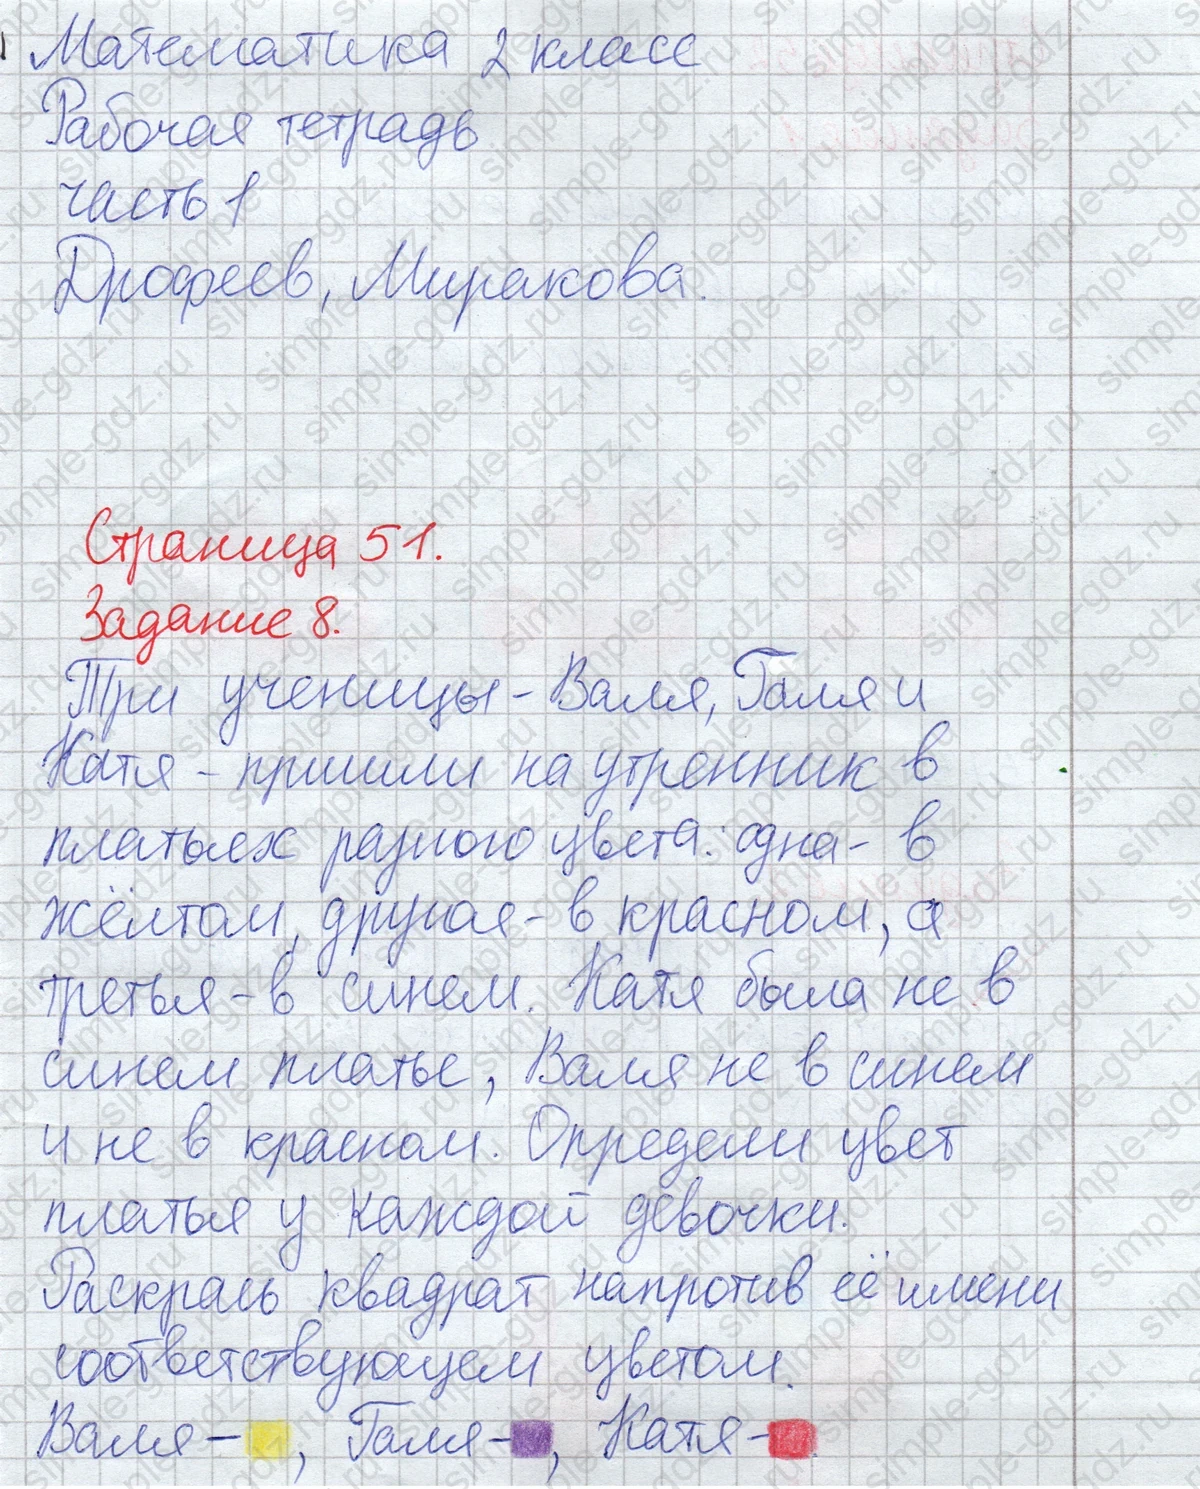 Математика 2 класс
Рабочая тетрадь
часть 1
Дрофеев, Миракова.
Страница 51.
Задание 8.
Три ученицы - Валя, Галя и
Катя - пришли на утренник в
платьях разного цвета: одна - в
жёлтом, другая - в красном, а
третья - в синем. Катя была не в
синем платье, Валя не в синем
и не в красном. Определи цвет
платья у каждой девочки.
Раскрась квадрат напротив её имени
соответствующем цветом.
Валя - , Галя - , Катя -
simple-gdz.ru